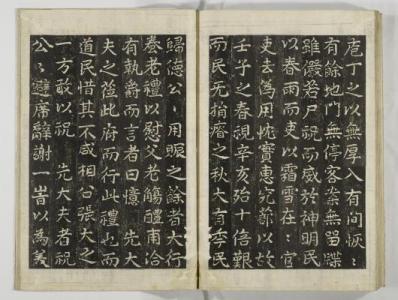 庖丁之以無厚入有間恢〻
有餘地門無停客案無留牒
雖儼若尸祝而威於神明民
以春雨而吏以霜雪在〻官
吏去為用寶惠究以故
壬子之春視辛亥殆十倍艱
而民无捐瘠之秋大有季民
歸德公〻用賑之餘者大行
養老禮以慰父老觴醴甫洽
有執爵而言者曰憶 先大
夫之蒞此府而行此禮也而
道民惜其不咸相公張大之
一方敢以祝 先大夫者祝
公〻避席辭謝一峕以為美